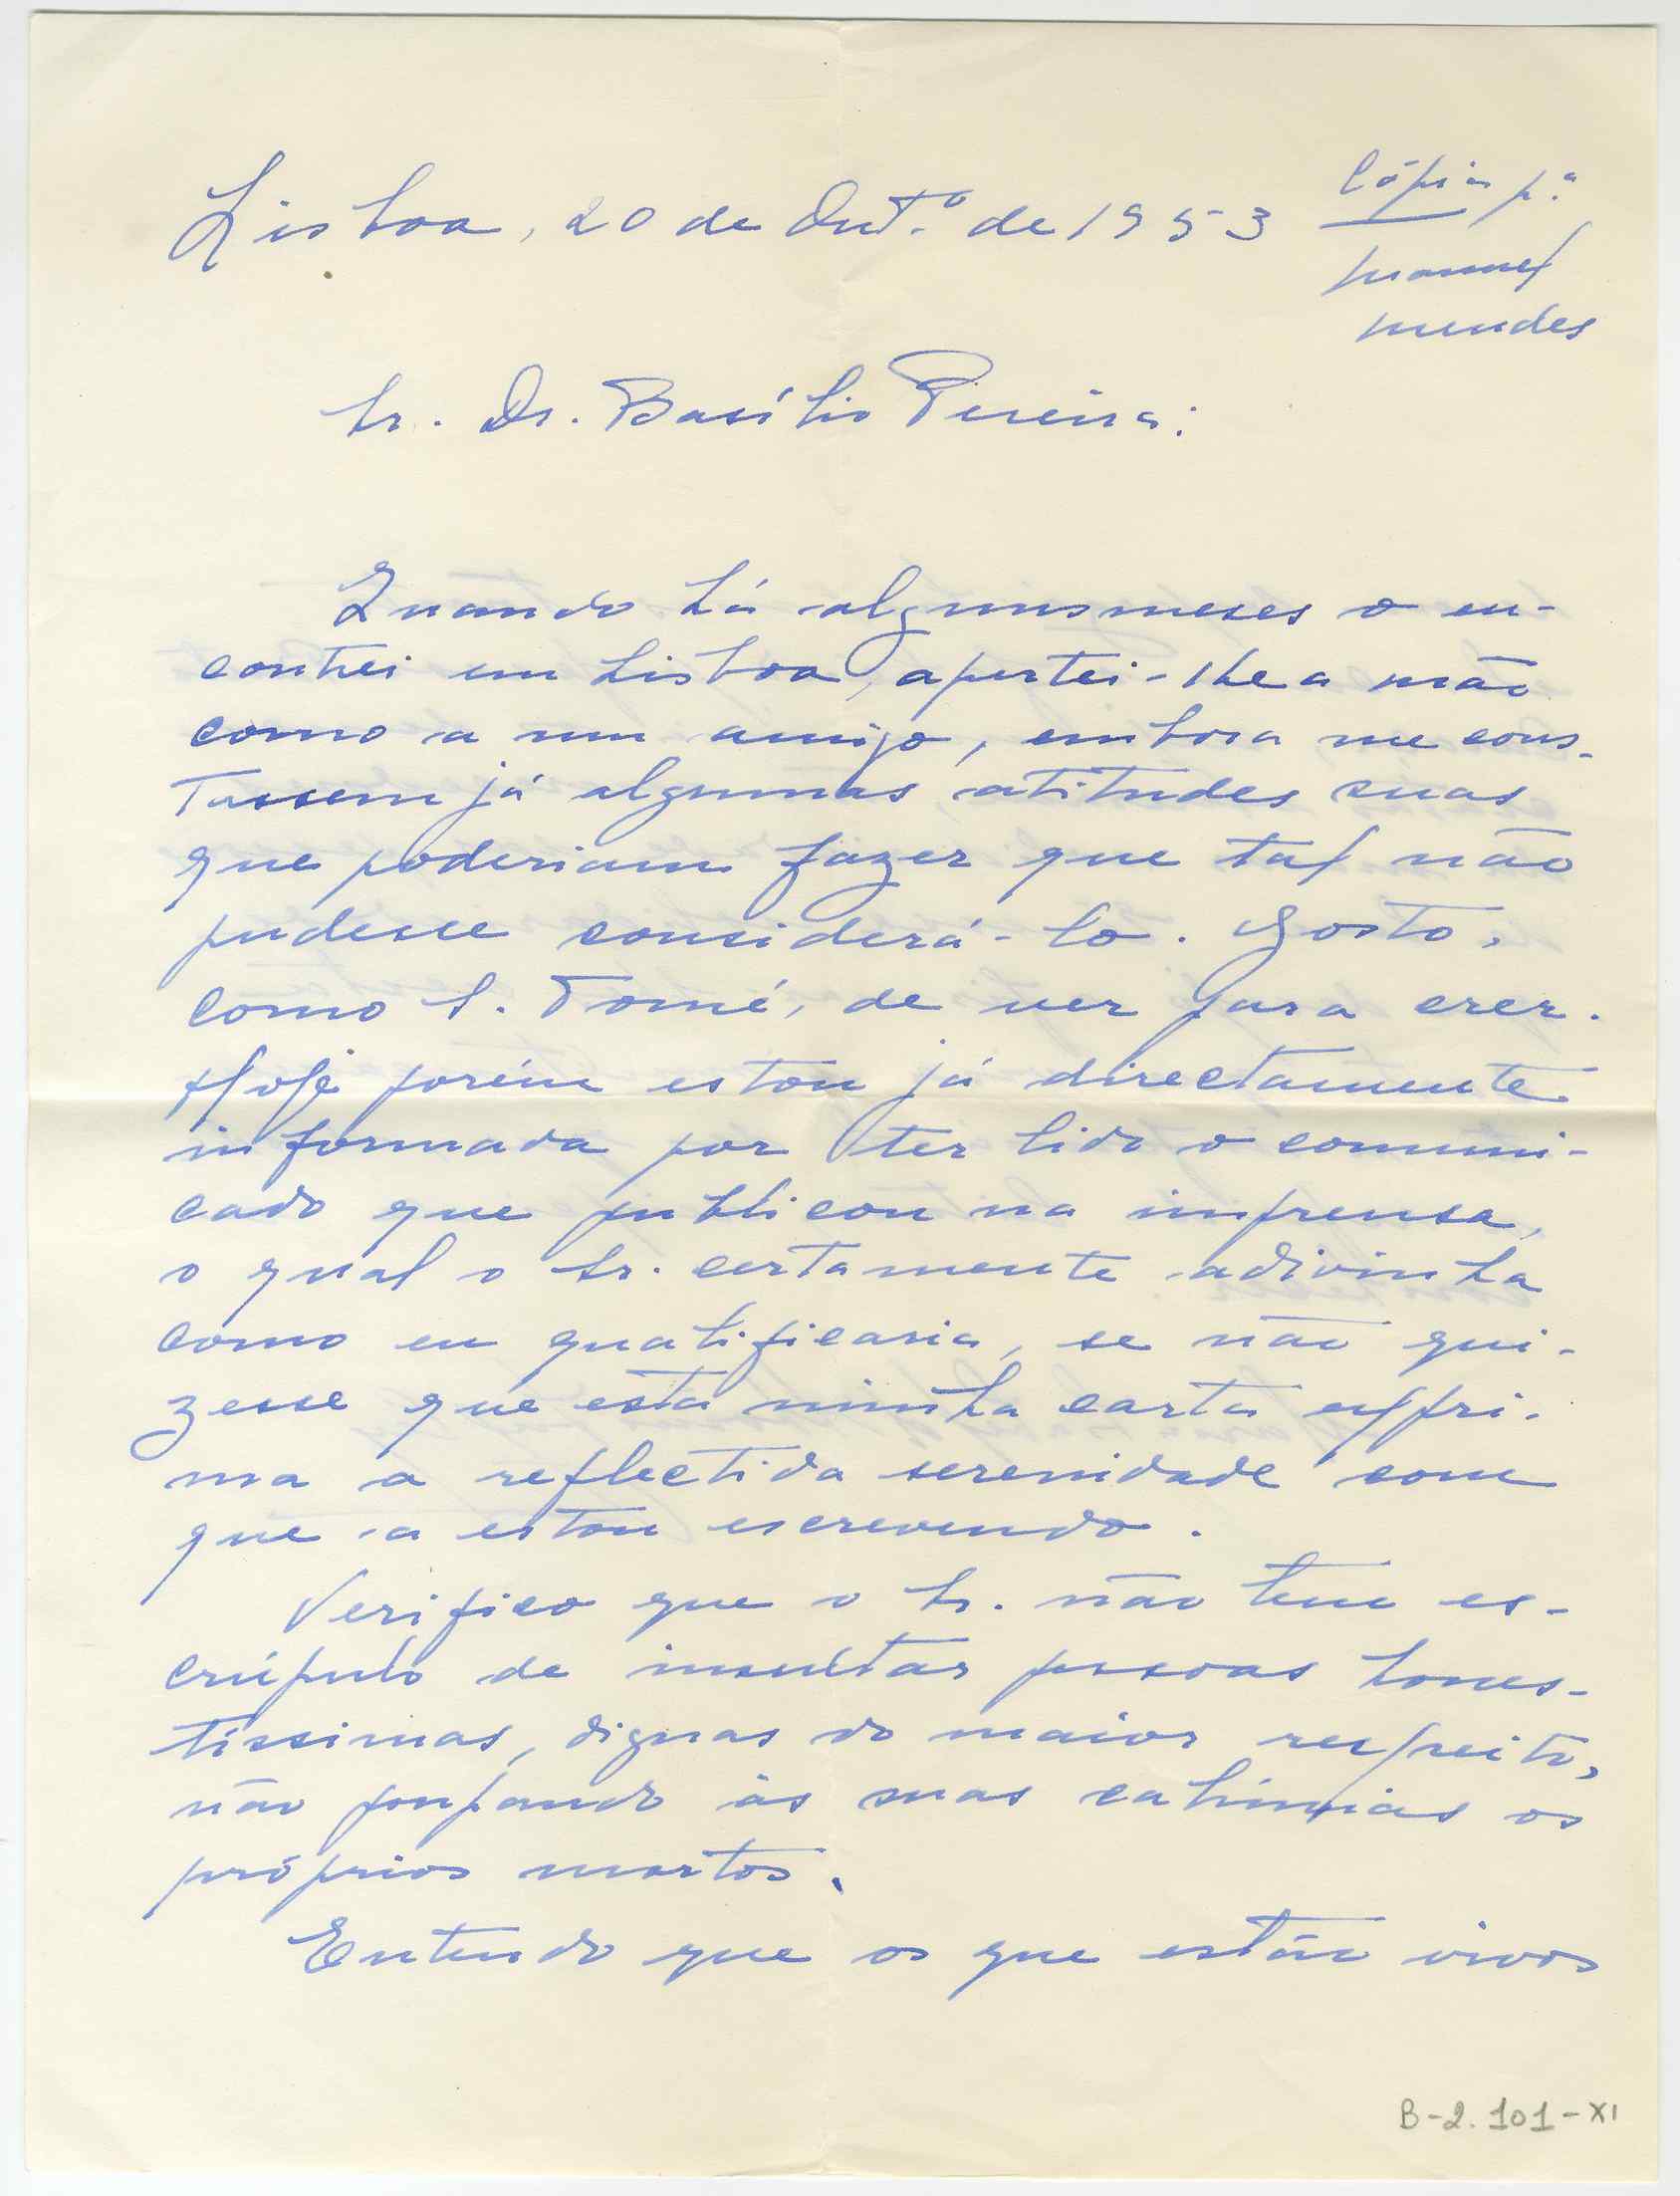 Lisboa, 20 de Out.º de 1953
Cópia p.ª
Manuel
Mendes
Sr. Dr. Basílio Pereira:
Quando há alguns meses o en-
contrei em Lisboa, apertei-lhe a mão
como a um amigo, embora me cons-
tassem já algumas atitudes suas
que poderiam fazer que tal não
pudesse considerá-lo. Gosto,
como S. Tomé, de ver para crer.
Hoje porém estou já directamente
informada por ter lido o comuni-
cado que publicou na imprensa,
o qual o Sr. certamente adivinha
como eu qualificaria, se não qui-
zesse que esta minha carta expri-
ma a reflectida serenidade com
que a estou escrevendo.
Verifico que o Sr. não tem es-
crúpulo de insultar pessoas hones-
tíssimas, dignas do maior respeito,
não poupando às suas calúnias os
próprios mortos.
Entendo que os que estão vivos
B-2.101-XI